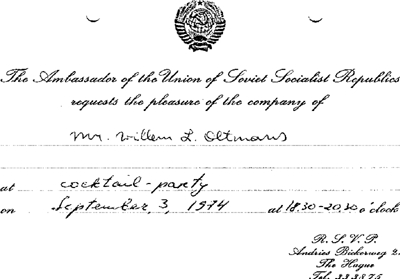 The Ambassador of the Union of Soviet Socialist Republics
requests the pleasure of the company of
Mr. Willem L. Oltmans
at cocktail-party
on September, 3, 1974 at 18.30-20.30 o'clock
R. S. V. P.
Andries Bickerweg 2.
The Hague
Tel. 333875